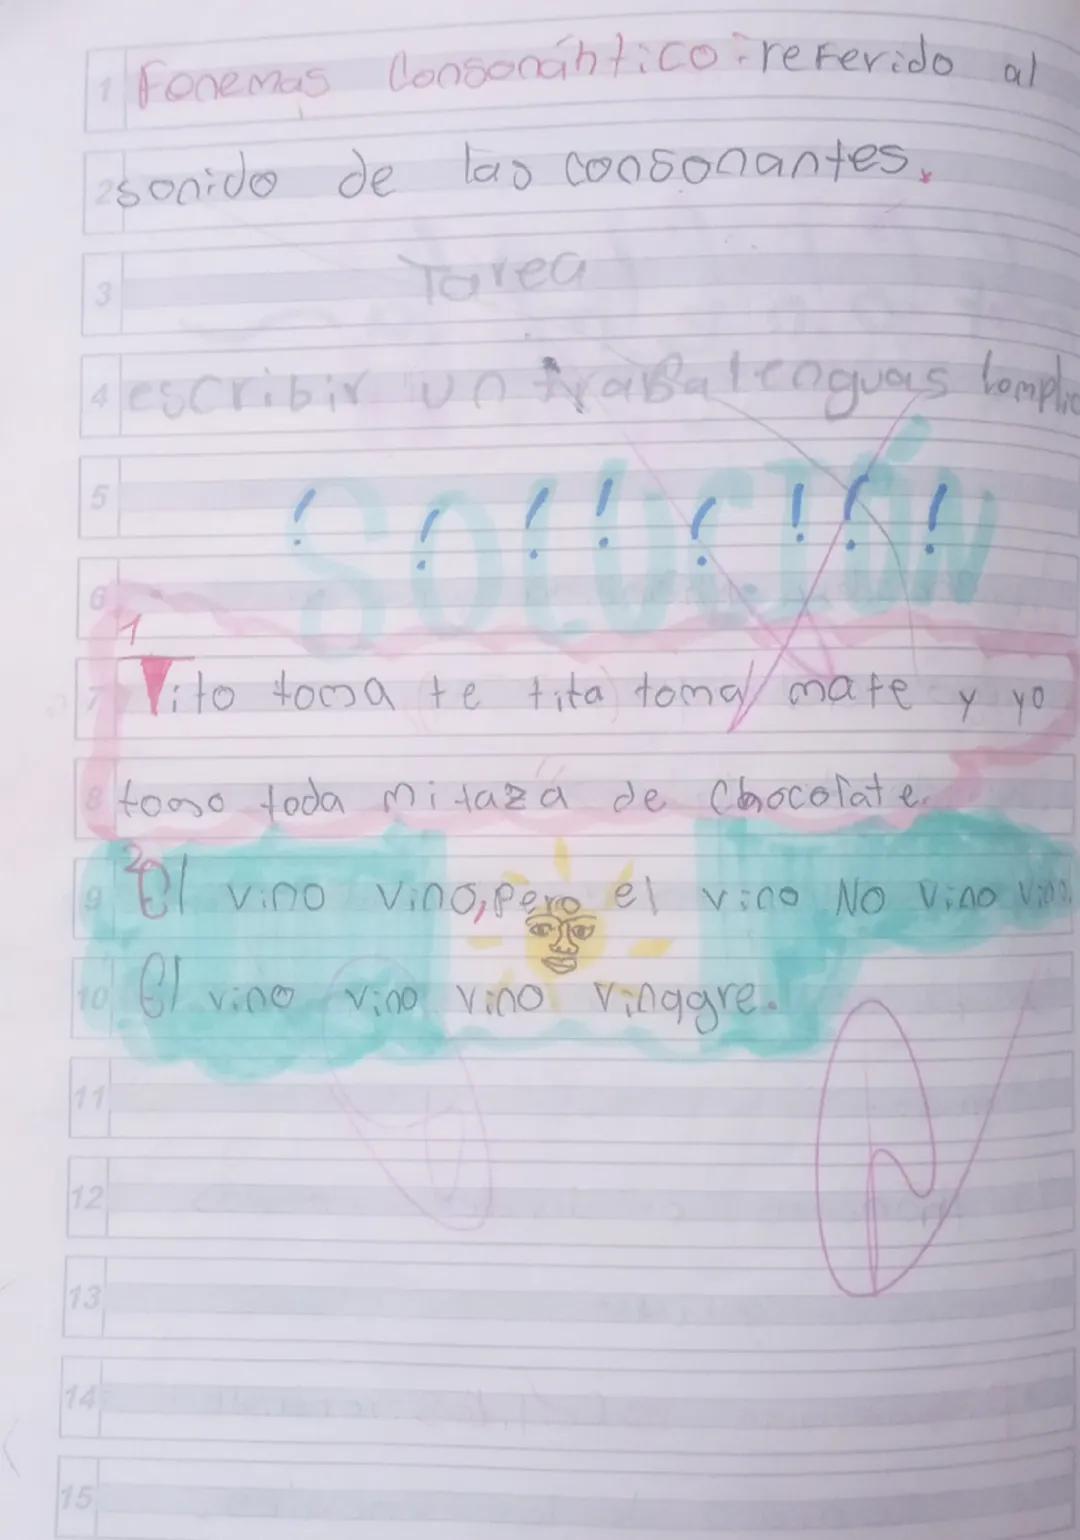 1 Fonemas Consonántico: referido al
2 sonido de las consonantes.
3 Tarea
4 escribir un trabalenguas Complic
5 SOLUCIÓN
6 1
7 Tito toma te tita toma mate y yo
8 tomo toda mi taza de Chocolate.
9 2 El vino vino, pero el vino NO vino vino.
10 El vino vino vino vinagre.
11
12
13
14
15